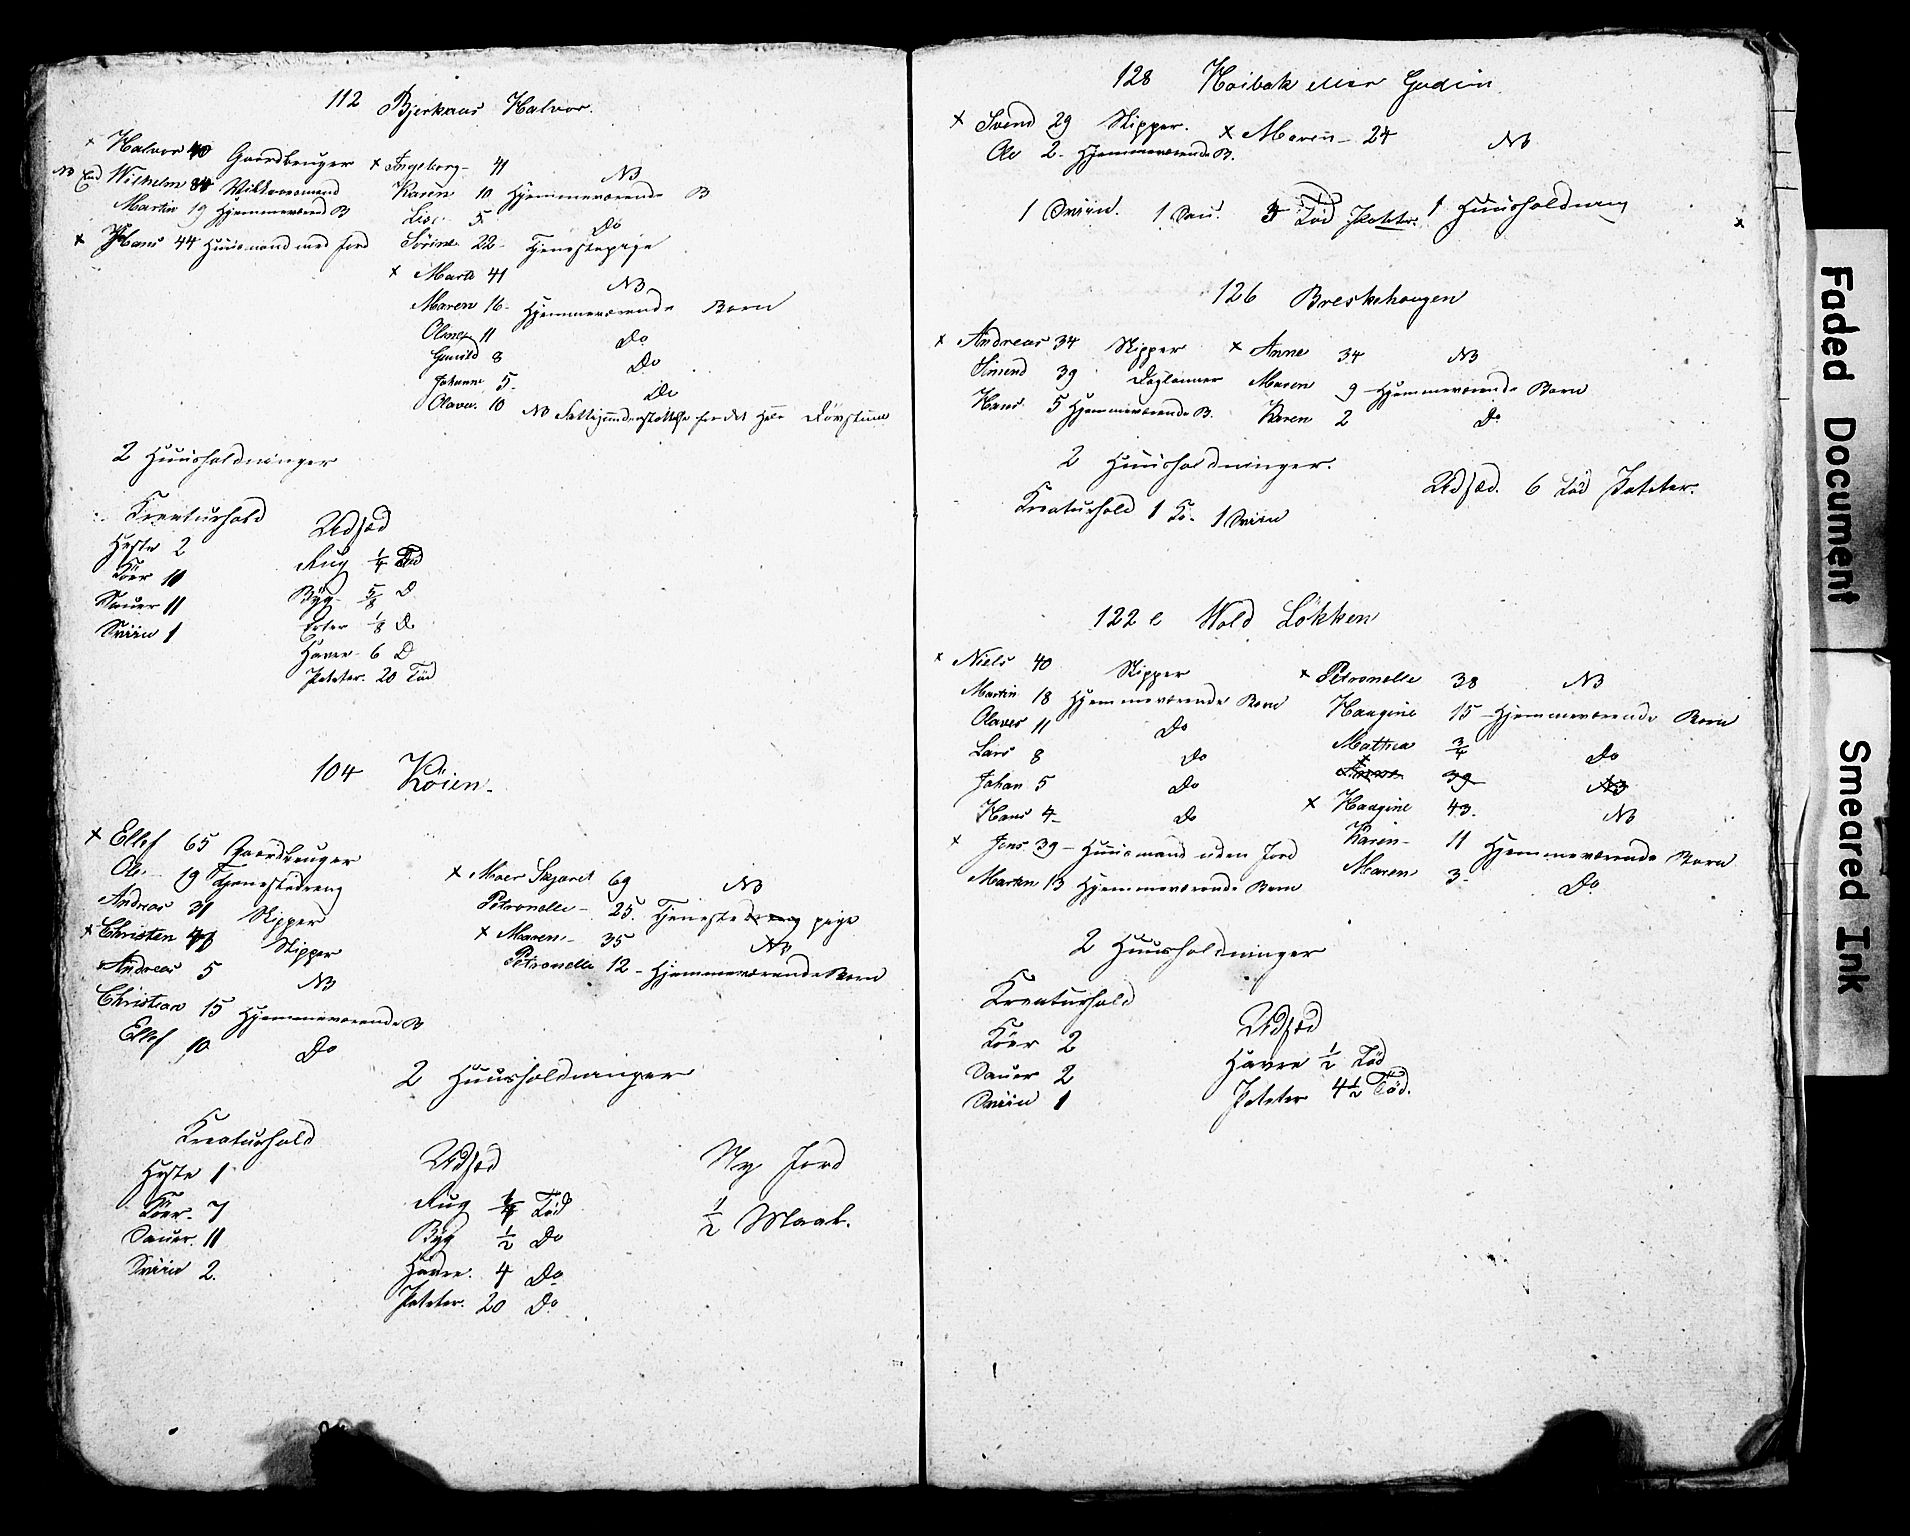 112 Bjerkaas Halvor.
× Halvor 40 Gaardbruger × Ingeborg - 41 NB
NB Wilhelm 84 Karen 10 Hjemmeværende B
Martin 19 Hjemmeværend B Lise 5 Do
× Hans 44 Huusmand med Jord Sörine 22 - Tjenestepige
× Mart 41 NB
Maren 16 - Hjemmeværende Born
11 Do
Gunild 8 Do
Johanne 5 Do
Olava 10 NB for det Hele Dövstum
2 Huusholdninger
Kreaturhold Udsæd
Heste 2 Rug 1/4 Töd
Köer 10 Byg 5/8 D
Sauer 11 Erter 1/8 D
Sviin 1 Havre - 6 D
Poteter. 20 Töd
104 Köien -
× Ellef 65 Gaardbruger × Maer Skjaret 69 NB
Ole - 19 Tjenestedreng Petronelle - 25. Tjeneste dreng pige
Andreas 31 Skipper × Maren - 35 NB
× Christen Skipper Petronelle 12 - Hjemmeværende Born
Andreas 5 NB
Christian 15 Hjemmeværende B
Ellef 10 Do
2 Huusholdninger
Kreaturhold Udsæd Ny Jord
Heste 1 Rug Töd 1/2 Maal.
Köer - 7 Byg 1/2 Do
Sauer. 11 Havre. 4 Do
Sviin 2. Poteter. 20 Do
128 Höibak eller
× Svend 29 Skipper. × Maren - 24 NB
Ole 2 - Hjemmeværende B.
1 Sviin. 1 Sau. Töd Poteter. 1 Huusholdning ×
126 Breskehougen
× Andreas 34 Skipper × Anne 34 NB
Simend 39 Daglönner Maren 9 - Hjemmeværende Born
Hans 5 Hjemmeværende B. Karen 2 Do
2 Huusholdninger.
Kreaturhold 1 Ko. 1 Sviin Udsæd. 6 Töd Poteter.
122 e Wold Lökken
× Niels 40 Skipper × Petronelle 38 NB
Martin 18 Hjemmeværende Born Haagine 15 - Hjemmeværende Born
Olaves 11 Do Mathea 3/4 Do
Lars 8 Do Anne 39 NB
Johan 5 Do × Haagine 43. NB
Hans 4 - Do Karen - 11 Hjemmeværende Born
× Jens 39 - Huusmand uden Jord Maren 3 - Do
Marten 13 Hjemmeværende Born
2 Huusholdninger
Kreaturhold Udsæd
Köer 2 Havre 1/2 Töd
Sauer 2 Poteter 4 1/2 Töd.
Sviin 1
Faded Document
Smeared Ink